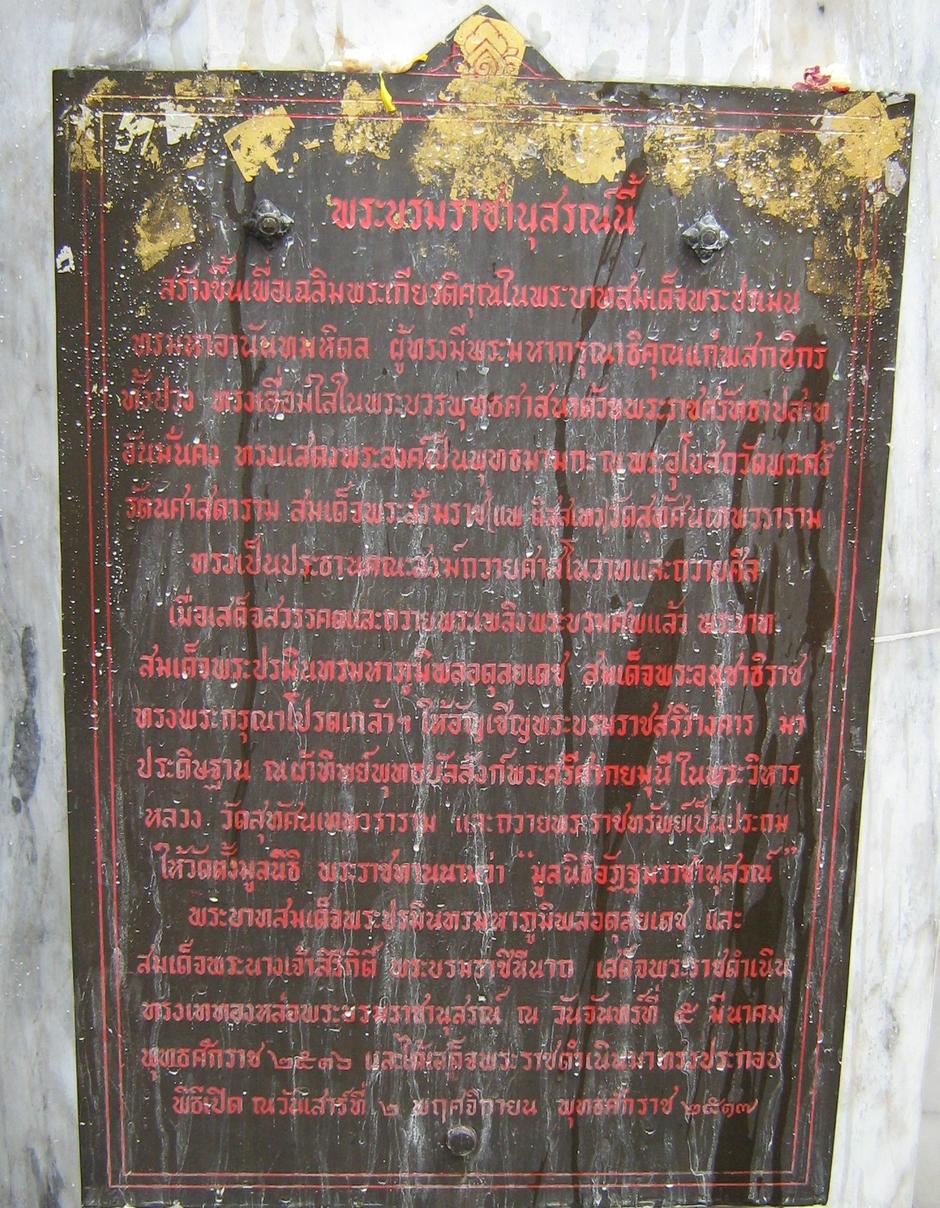 พระบรมราชานุสรณ์นี้
สร้างขึ้นเพื่อเฉลิมพระเกียรติคุณในพระบาทสมเด็จพระปรเมน
ทรมหาอานันทมหิดล ผู้ทรงมีพระมหากรุณาธิคุณแก่พสกนิกร
ทั้งปวง ทรงเลื่อมใสในพระบวรพุทธศาสนาด้วยพระราชศรัทธาปสาท
อันมั่นคง ทรงแสดงพระองค์เป็นพุทธมามกะ ณ พระอุโบสถวัดพระศรี
รัตนศาสดาราม สมเด็จพระสังฆราช(แพ ติสสเทว)วัดสุทัศนเทพวราราม
ทรงเป็นประธานคณะสงฆ์ถวายศาสโนวาทและถวายศีล
เมื่อเสด็จสวรรคตและถวายพระเพลิงพระบรมศพแล้ว พระบาท
สมเด็จพระปรมินทรมหาภูมิพลอดุลยเดช สมเด็จพระอนุชาธิราช
ทรงพระกรุณาโปรดเกล้าฯ ให้อัญเชิญพระบรมราชสรีรางคาร มา
ประดิษฐาน ณ ผ้าทิพย์พุทธบัลลังก์พระศรีศากยมุนี ในพระวิหาร
หลวง วัดสุทัศนเทพวราราม และถวายพระราชทรัพย์เป็นประถม
ให้วัดตั้งมูลนิธิ พระราชทานนามว่า “มูลนิธิอัฏฐมราชานุสรณ์”
พระบาทสมเด็จพระปรมินทรมหาภูมิพลอดุลยเดช และ
สมเด็จพระนางเจ้าสิริกิติ์ พระบรมราชินีนาถ เสด็จพระราชดำเนิน
ทรงเททองหล่อพระบรมราชานุสรณ์ ณ วันจันทร์ที่ ๕ มีนาคม
พุทธศักราช ๒๕๑๖ และได้เสด็จพระราชดำเนินมาทรงประกอบ
พิธีเปิด ณ วันเสาร์ที่ ๒ พฤศจิกายน พุทธศักราช ๒๕๑๗